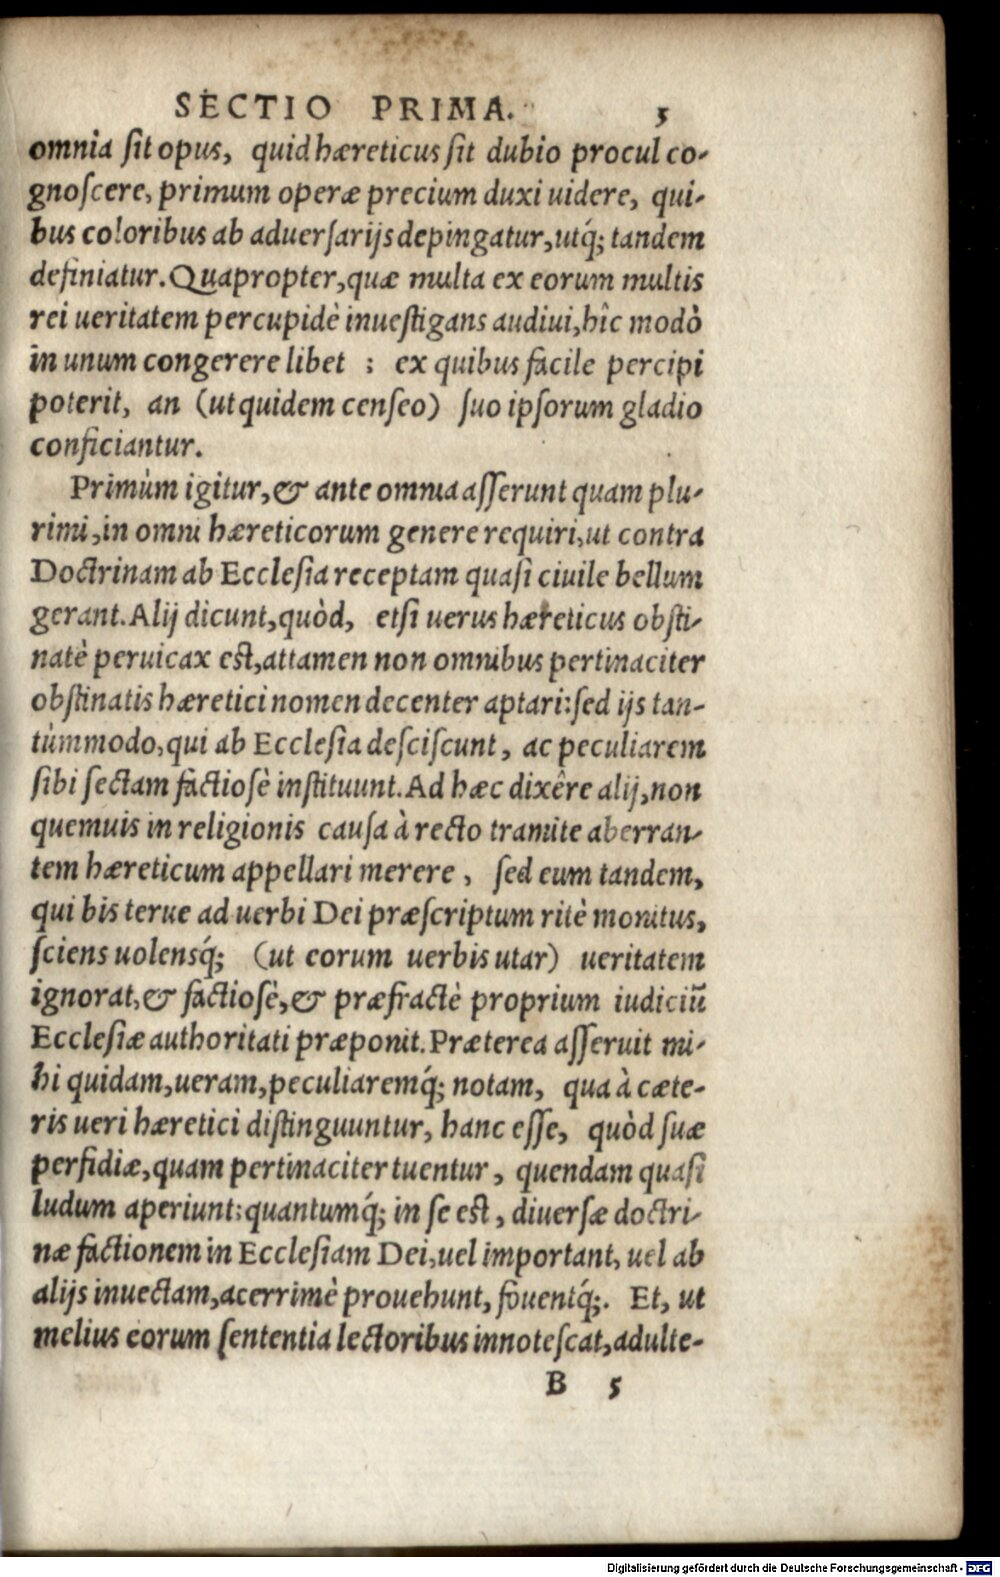 SECTIO PRIMA. 5
omnia sit opus, quid hæreticus sit dubio procul co-
gnoscere, primum operæ precium duxi uidere, qui-
bus coloribus ab aduersarijs depingatur, utq́; tandem
definiatur. Quapropter, quæ multa ex eorum multis
rei ueritatem percupidè inuestigans audiui, hîc modò
in unum congerere libet ; ex quibus facile percipi
poterit, an (ut quidem censeo) suo ipsorum gladio
conficiantur.
Primùm igitur, & ante omnia asserunt quam plu-
rimi, in omni hæreticorum genere requiri, ut contra
Doctrinam ab Ecclesia receptam quasi ciuile bellum
gerant. Alij dicunt, quòd, etsi uerus hæreticus obsti-
natè peruicax est, attamen non omnibus pertinaciter
obstinatis hæretici nomen decenter aptari: sed ijs tan-
tùmmodo, qui ab Ecclesia desciscunt, ac peculiarem
sibi sectam factiosè instituunt. Ad hæc dixêre alij, non
quemuis in religionis causa à recto tramite aberran-
tem hæreticum appellari merere, sed eum tandem,
qui bis terue ad uerbi Dei præscriptum ritè monitus,
sciens uolensq́; (ut eorum uerbis utar) ueritatem
ignorat, & factiosè, & præfractè proprium iudiciũ
Ecclesiæ authoritati præponit. Præterea asseruit mi-
hi quidam, ueram, peculiaremq́; notam, qua à cæte-
ris ueri hæretici distinguuntur, hanc esse, quòd suæ
perfidiæ, quam pertinaciter tuentur, quendam quasi
ludum aperiunt: quantumq́; in se est, diuersæ doctri-
næ factionem in Ecclesiam Dei, uel important, uel ab
alijs inuectam, acerrimè prouehunt, fouentq́;. Et, ut
melius eorum sententia lectoribus innotescat, adulte-
B 5
Digitalisierung gefördert durch die Deutsche Forschungsgemeinschaft - DFG